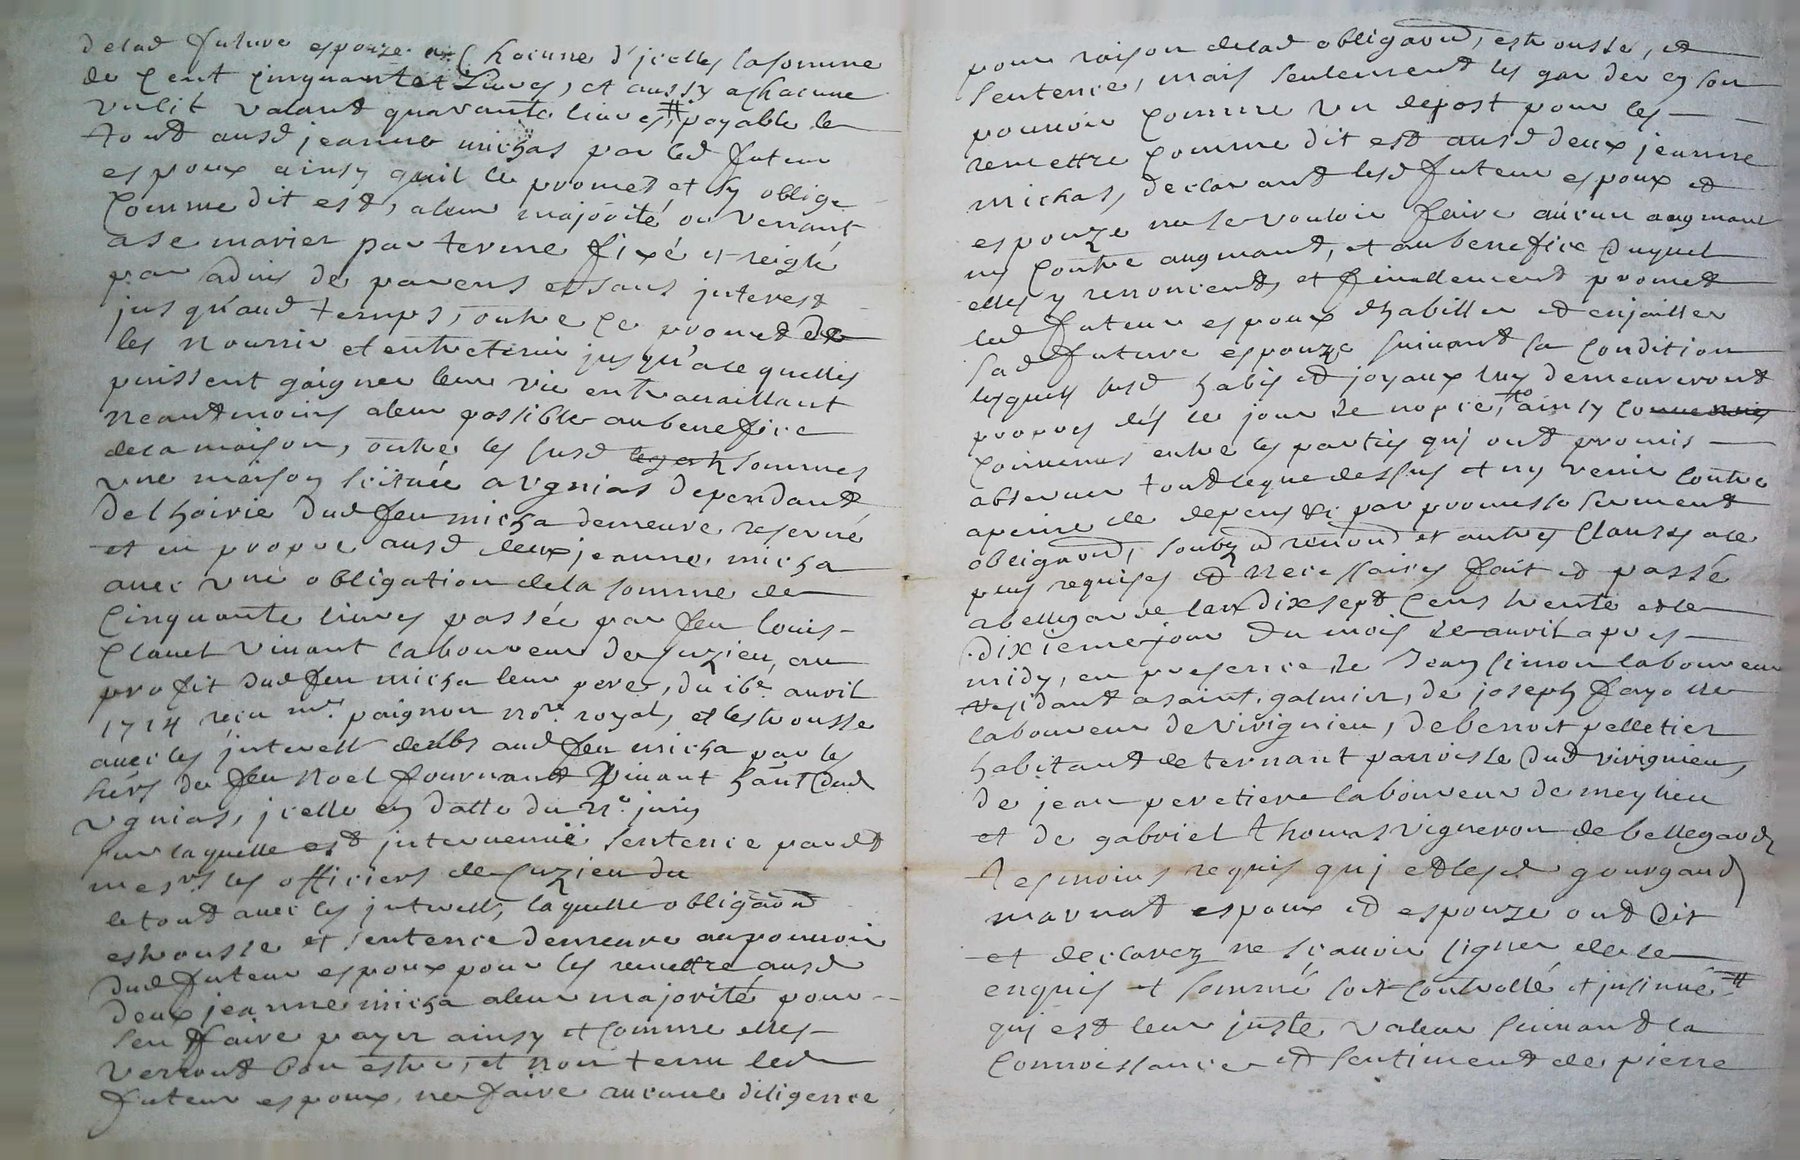 delad future espouze a Chacune d'jcelles la somme
de Cent Cinquante Livres, et aussy a Chacune
un lit valant quarante livres, # payable le
tout ausd jeanne michas par led futeur
espoux ainsy quil le promet et sy oblige
Comme dit est, a leur majorité ou venant
a se marier par terme fixé et reiglé
par advis de parens et sans jnterest
jusqu'aud temps, outre Ce promet de
les nourrir et entretenir jusqu'a ce quelles
puissent gaigner leur vie en travaillant
neantmoins a leur possible au benefice
de la maison, outre les susd sommes
une maison scituée a Ugnias dependant
de Lhoirie dud feu micha demeure reservé
et en propre ausd deux jeanne micha
avec une obligation de la somme de
Cinquante livres passée par feu Louis
Clauel vivant laboureur de Cuzieu, au
profit dud feu micha leur pere, du 16e avril
1714 reçu me paignon nore royal, et lestrousse
avec les jnterest deubs aud feu micha par les
hers de feu Noel fournand vivant hant dud
Ugnias, jcelle en datte du 11e juin
sur laquelle est jntervenüe sentence pardt
messrs les officiers de Cuzieu du
le tout avec les jnterests, laquelle obligaõn
estrousse et sentence demeure au pouvoir
dud futeur espoux pour les remettre ausd
deux jeanne micha a leur majorité pour
sen faire payer ainsy et Comme elles
verront bon estre, et non tenu led
futeur espoux ne faire aucune diligence
pour raison delad obligaõn, estrousse, et
sentence, mais seulement les garder en son
pouvoir Comme un depost pour les
remettre Comme dit est ausd deux jeanne
michas, declarant lesd futeur espoux et
espouze ne se vouloir faire aucun augmant
ny Contre augmant, et au benefice duquel
elles y renoncent, et finallement promet
led futeur espoux dhabiller et enjoailler
sad future espouze suivant sa Condition
lesquels susd habis et joyaux luy demeureront
propres dés le jour de nopce, # ainsy
Convenus entre les parties quj ont promis
observer tout le que dessus et ny venir Contre
a peine de depens &c par promesse serment
obligaõn, soubz et renonõn et autres Clauses a ce
plus requises et necessaires fait et passé
a bellegarde lan dix sept Cens trente et le
dixieme jour du mois de avril apres
midy, en presence de Jean simon laboureur
residant a saint galmier, de joseph fayolle
laboureur de vivignieu, de benoit pelletier
habitant de ternant parroisse dud virignieu,
de jean peretiere laboureur de meylieu
et de gabriel thomas vigneron de bellegarde
tesmoins requis quj et lesd gourgaud
marnat espoux et espouze ont dit
et declarez ne sçavoir signer de ce
enquis et sommé soit Controllé et jnsinué #
quj est leur juste valeur suivant la
Connoissance et sentiment de pierre